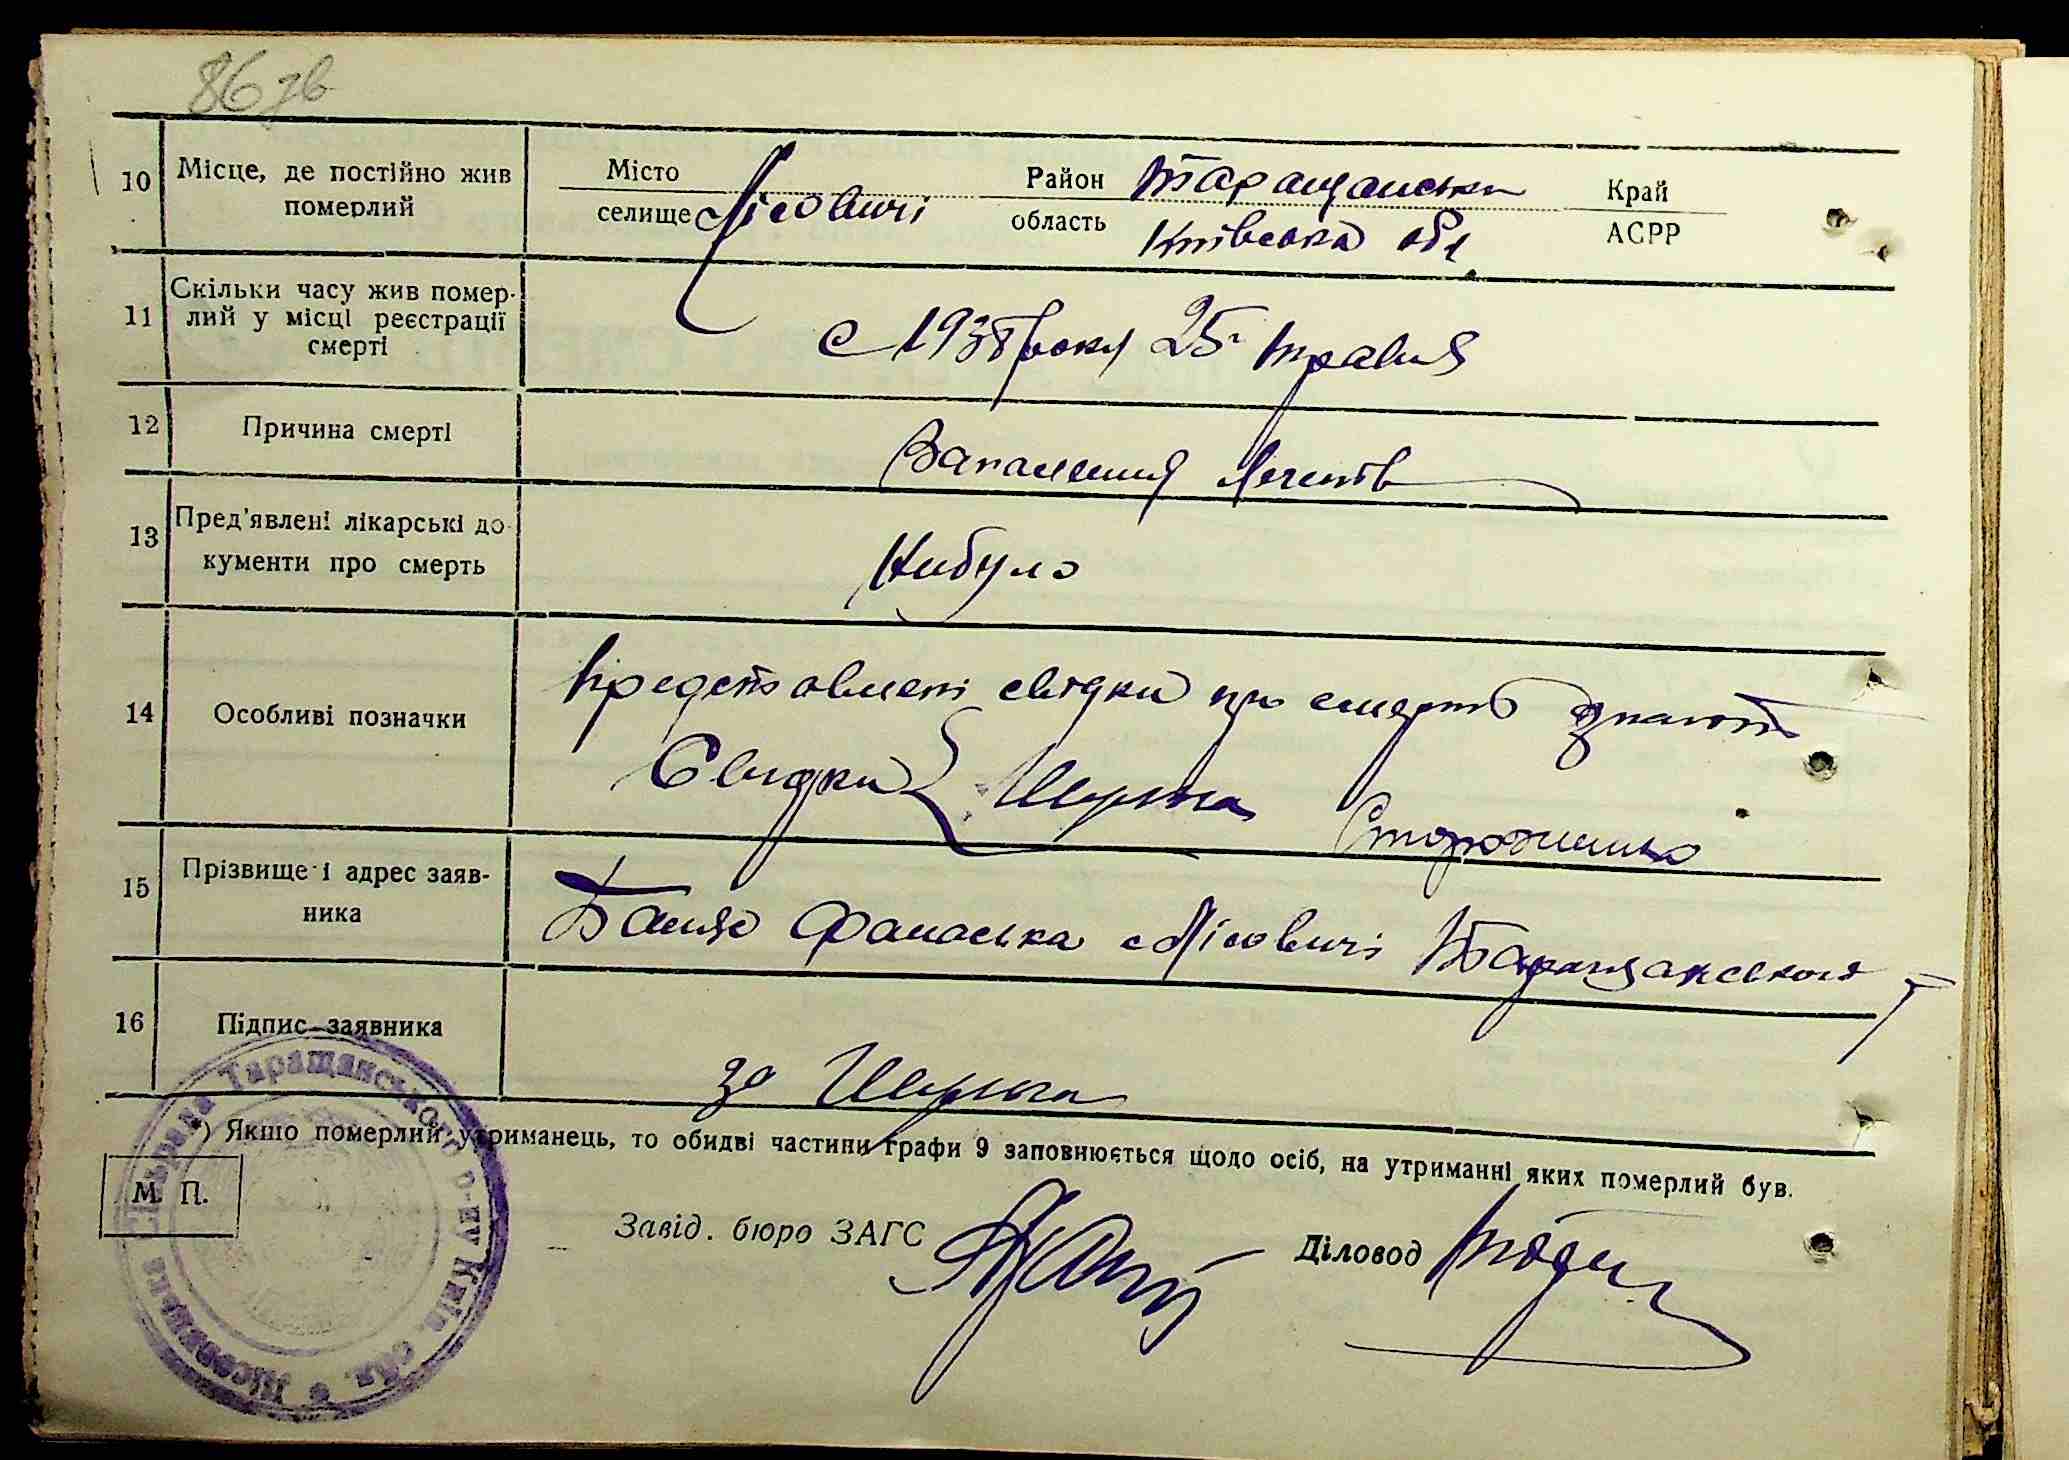 86 зв
10 Місце, де постійно жив Місто Район Таращанськи Край
померлий селище Лісовичі область Київська обл АСРР
Скільки часу жив помер-
11 лий у місці реєстрації
смерті
с 193 року 25 травня
12 Причина смерті Запалення легенів
Пред'явлені лікарські до-
13 Нибуло
кументи про смерть
представлені свідки про смерть
14 Особливі позначки
Свидки Стороженко
Прізвище і адрес заяв-
15 Фанаська с Лісовичі Таращанського
ника
16 Підпис заявника
за
*) Якшо померлий утриманець, то обидві частини графи 9 заповнюється щодо осіб, на утриманні яких померлий був.
М. П.
Завід. бюро ЗАГС Діловод
Таращанського р-ну Київ обл. с Лісовицька Сільрада